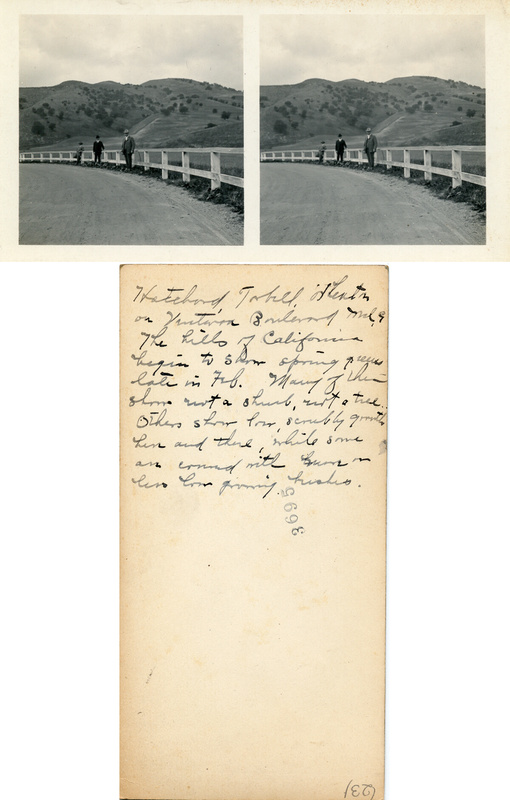 on Ventura Boulevard
The hills of California
begin to show spring green
late in Feb. Many of them
show not a shrub, not a tree.
Others show low, scrubby growth
here and there, while some
are covered with more or
less low growing bushes.
3695
(23)